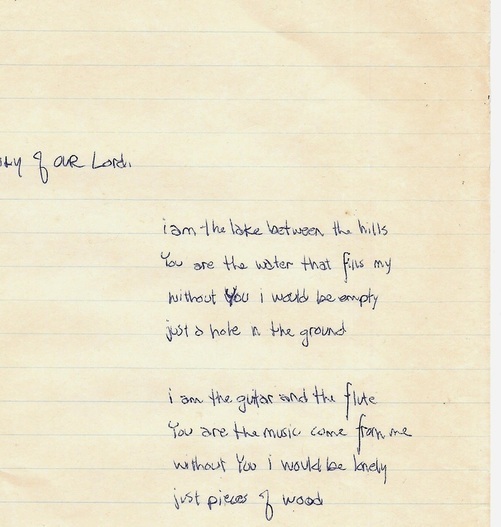 of our Lord.
i am the lake between the hills
You are the water that fills my
without You i would be empty
just a hole in the ground
i am the guitar and the flute
You are the music come from me
without You i would be lonely
just pieces of wood